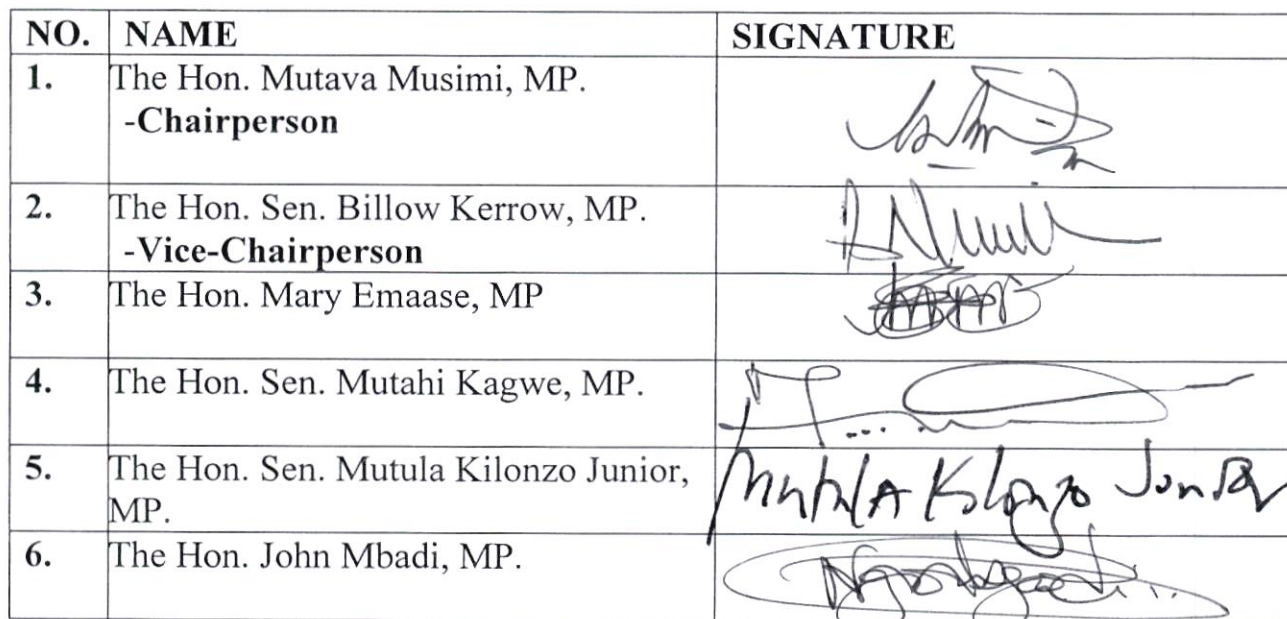 NO. NAME SIGNATURE
1. The Hon. Mutava Musimi, MP.
-Chairperson
2. The Hon. Sen. Billow Kerrow, MP.
-Vice-Chairperson
3. The Hon. Mary Emaase, MP
4. The Hon. Sen. Mutahi Kagwe, MP.
5. The Hon. Sen. Mutula Kilonzo Junior, Mutula Kilonzo Junior
MP.
6. The Hon. John Mbadi, MP.